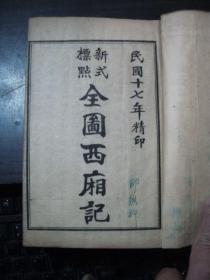 民國十七年精印
新式
標點
全圖西廂記